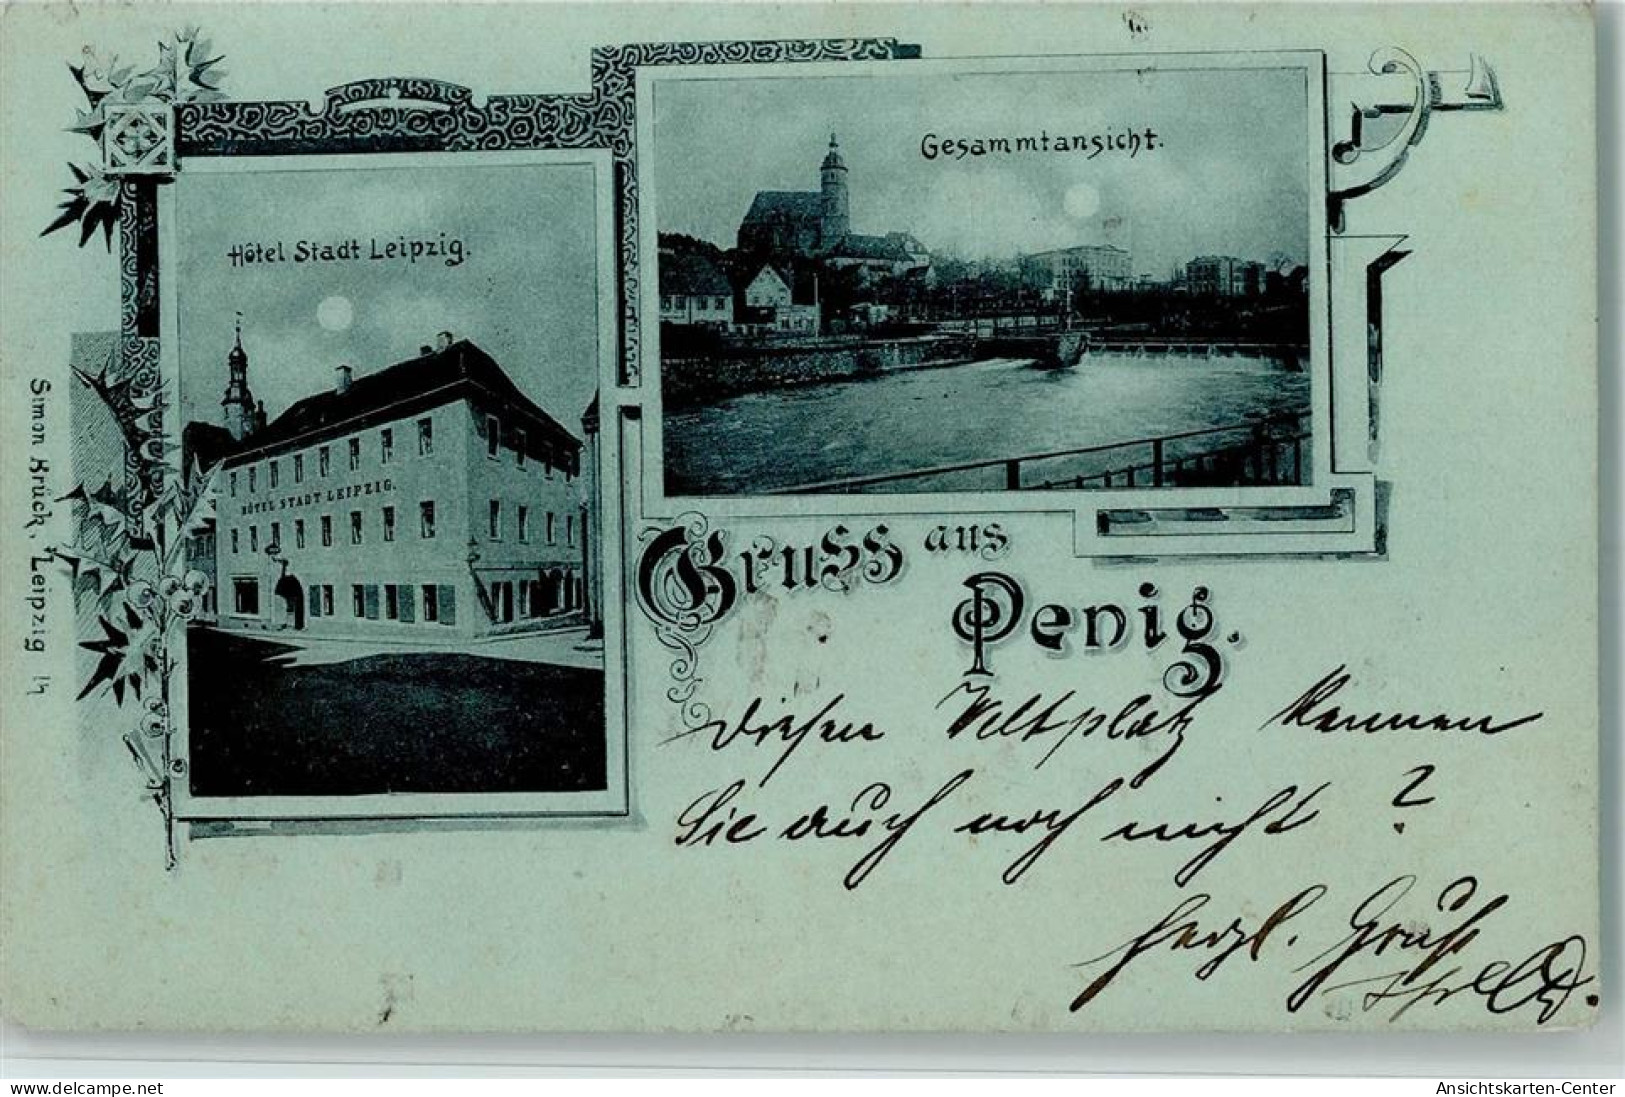 Hôtel Stadt Leipzig.
HÔTEL STADT LEIPZIG.
Gesammtansicht.
Gruss aus
Penig.
Diesen Weltplatz kennen
Sie auch noch nicht?
Herzl. Gruß
Simon Krück, Leipzig 14
www.delcampe.net
Ansichtskarten-Center